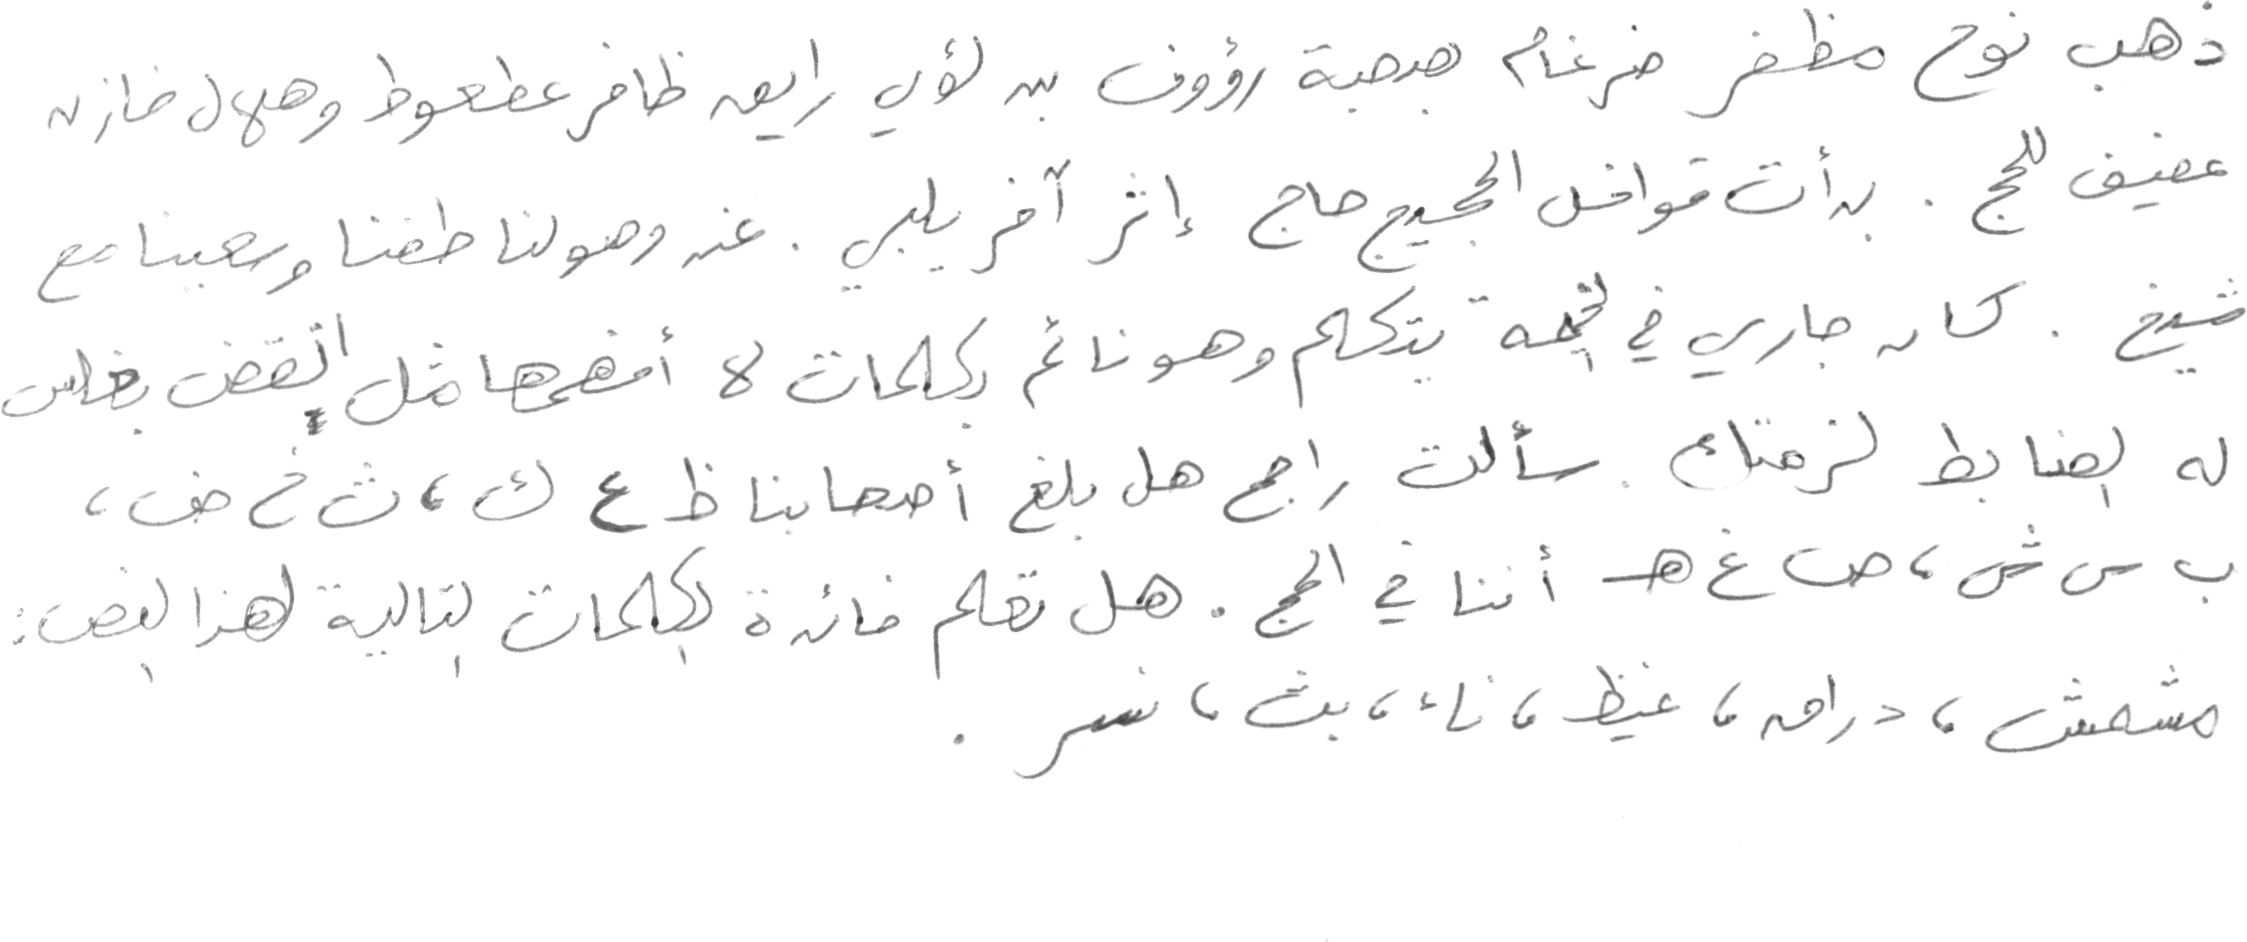 ذهب نوح مظفر ضرغام بصحبة رؤوف بن لؤي رايق ظافر عطعوط وهلال خازن
عفيف للحج . بدأت قوافل الحجيج حاج إثر آخر يلبي . عند وصولنا طفنا وسعينا مع
شيخ . كان جاري في الخيمة يتكلم وهو نائم بكلمات لا أفهمها مثل انقض بغلس
له الضابط لزمتك . سألت راجح هل بلغ أصحابنا ظ ع ك ، ث خ ض ،
ب س ش ، ص غ هـ أننا في الحج . هل تعلم فائدة الكلمات التالية لهذا النص :
مشمش ، دراق ، غيظ ، ناء ، بث ، نسر .